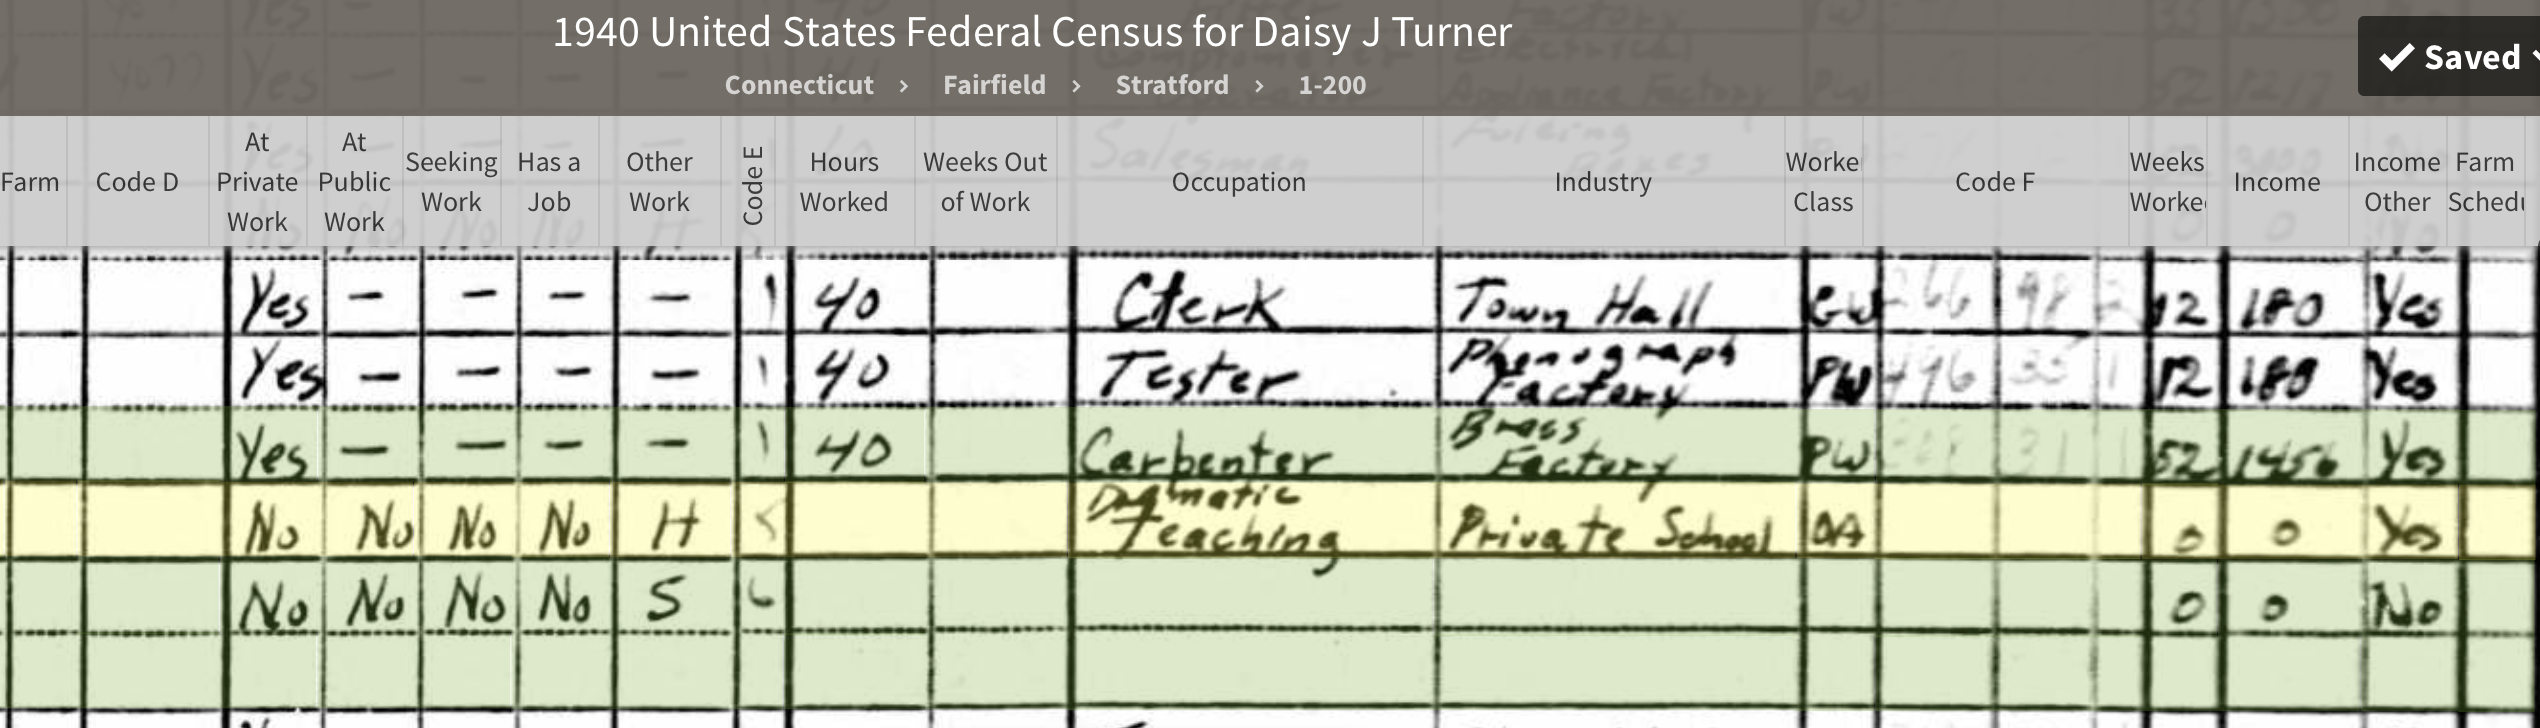 1940 United States Federal Census for Daisy J Turner
Saved
Connecticut › Fairfield › Stratford › 1-200
Farm Code D At Private Work At Public Work Seeking Work Has a Job Other Work Code E Hours Worked Weeks Out of Work Occupation Industry Worke Class Code F Weeks Worke Income Income Other Farm Schedu
Yes — — — — 1 40 Clerk Town Hall GW 266 98 2 12 180 Yes
Yes — — — — 1 40 Tester Phonograph Factory PW 496 35 1 12 180 Yes
Yes — — — — 1 40 Carpenter Brass Factory PW 31 1 52 1456 Yes
No No No No H 5 Dramatic Teaching Private School OA 0 0 Yes
No No No No S 6 0 0 No